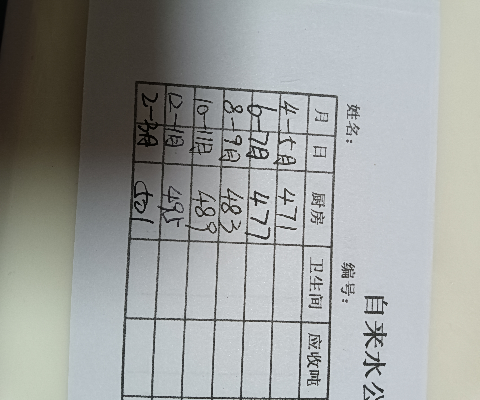 自来水公
姓名： 编号：
月 日 厨房 卫生间 应收吨
4-5月 471
6-7月 477
8-9月 483
10-11月 489
12-1月 495
2-3月 501